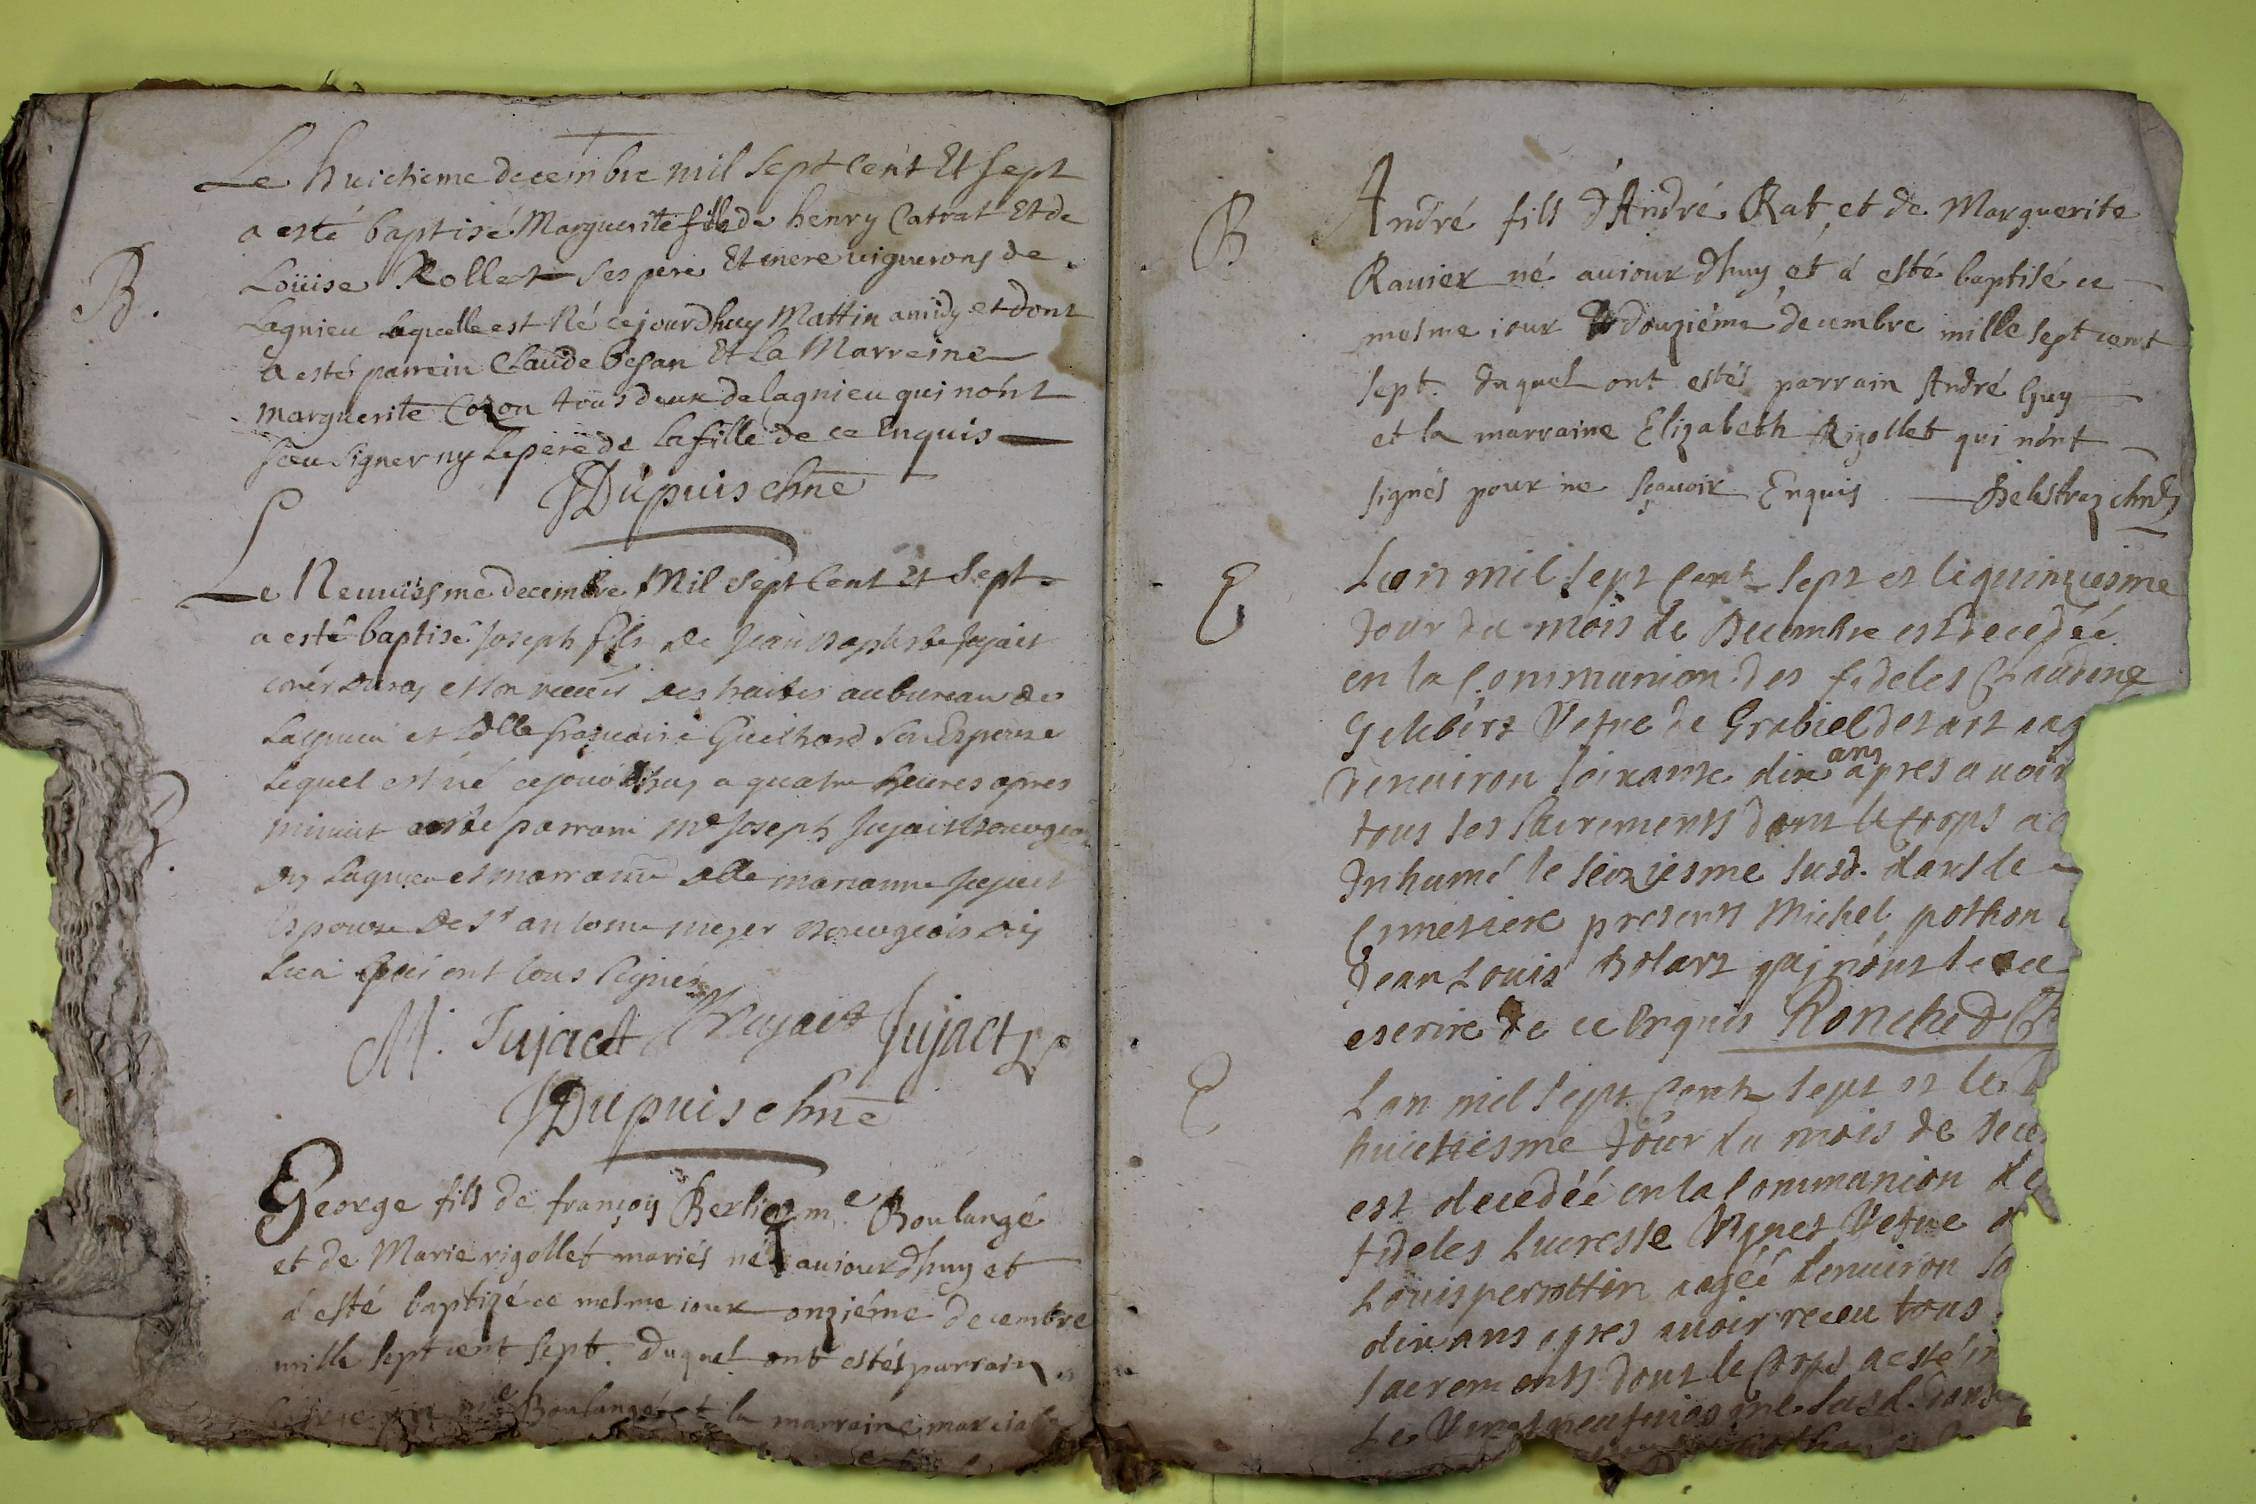 Le huictieme decembre mil sept Cent Et sept
a esté baptisé Marguerite fille de henry Catrat Et de
B.
Loüise Rollet ses pere Et mere vignerons de
Lagnieu Laquelle est Né cejourdhuy Mattin amidy et dont
a esté parrein Claude besan Et La Marreine
Marguerite Cozon tous deux de lagnieu qui nont
sceu signer ny Le pere de La fille de ce Enquis
JDupuis chne
Le Neuuiesme decembre Mil Sept Cent Et Sept
a esté baptisé Joseph fils de Jean Baptiste Jujait
et son des traites au bureau de
Lagnieu et Dlle françoise Guilhard son Espouse
Lequel est né cejourdhuy a quatre heures apres
minuit a esté parrain Me Joseph Jujait Bourgeois
de Lagnieu et marrainne dlle marianne Jujait
Espouse De Sr antoine meyer Bourgeois
qui ont tous signés
M. Jujact Jujact
JDupuis chne
George fils de françois Berlier me Boulangé
et de Marie rigollet mariés né aujourdhuy et
a esté baptizé ce mesme iour onziéme decembre
mille sept cent sept. duquel ont estés parrain
George Boulangé et la marraine
B
André fils d'André Rat, et de Marguerite
Rauier né auiourdhuy, et á esté baptisé ce
mesme iour douziéme decembre mille sept cent
sept. duquel ont estés parrain André Guy
et la marraine Elizabeth Rigollet qui nônt
signés pour ne sçauoir Enquis
E
Lan mil sept Cent sept et le quinziesme
Jour du mois de Decembre est decedéé
en la Communion des fideles Claudine
Gilibert Vefue de Grabiel detart aag
denuiron soixante dix ans apres auoir
tous ses sacrements dont le corps a e
Inhumé le seiziesme susd. dans le
Cimetiere presents Michel pothon
Jean Louis Bolart qui nônt sceu
escrire de ce Enquis
E
Lan mil sept Cent sept et le
huictiesme Jour du mois de dece
est decedéé en la Communion de
fideles Lucresse Vignet Vefue d
Louis perrottin aagéé denuiron so
dix ans apres auoir receu tous
sacrements dont le Corps a esté in
Le Vingtneufuiesme susd. dans